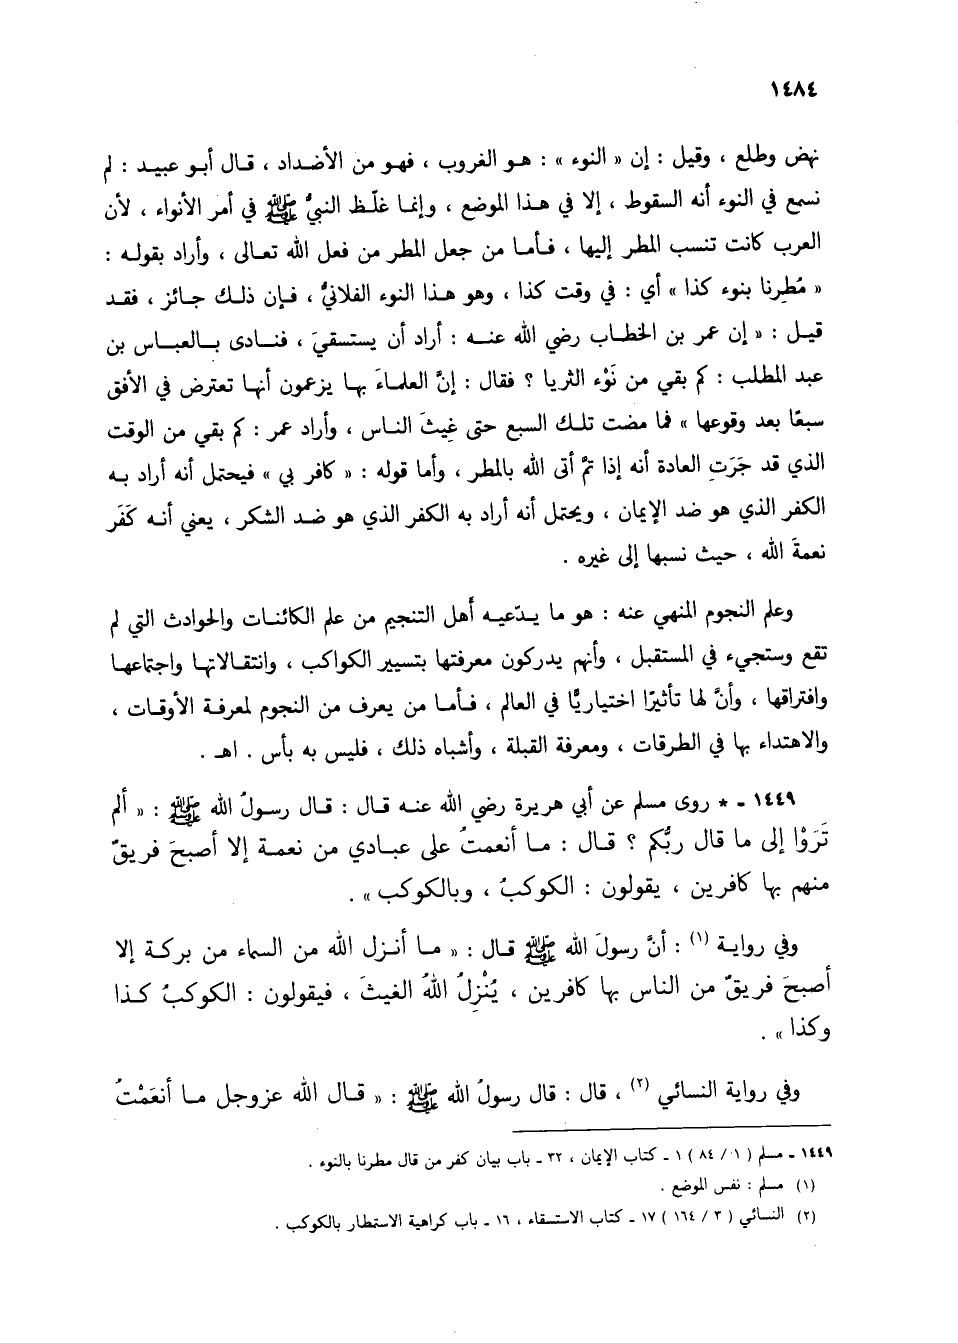 ١٤٨٤
نهض وطلع ، وقيل : إن « النوء » : هو الغروب ، فهو من الأضداد ، قال أبو عبيد : لم
نسمع في النوء أنه السقوط ، إلا في هذا الموضع ، وإنما غلّظ النبيُّ ﷺ في أمر الأنواء ، لأن
العرب كانت تنسب المطر إليها ، فأما من جعل المطر من فعل الله تعالى ، وأراد بقوله :
« مُطِرنا بنوء كذا » أي : في وقت كذا ، وهو هذا النوء الفلانيُّ ، فإن ذلك جائز ، فقد
قيل : « إن عمر بن الخطاب رضي الله عنه : أراد أن يستسقيَ ، فنادى بالعباس بن
عبد المطلب : كم بقي من نَوْء الثريا ؟ فقال : إنَّ العلماءَ بها يزعمون أنها تعترض في الأفق
سبعًا بعد وقوعها » فما مضت تلك السبع حتى غِيثَ الناس ، وأراد عمر : كم بقي من الوقت
الذي قد جَرَتِ العادة أنه إذا تمَّ أتى الله بالمطر ، وأما قوله : « كافر بي » فيحتمل أنه أراد به
الكفر الذي هو ضد الإيمان ، ويحتمل أنه أراد به الكفر الذي هو ضد الشكر ، يعني أنه كَفَر
نعمةَ الله ، حيث نسبها إلى غيره .
وعلم النجوم المنهي عنه : هو ما يدّعيه أهل التنجيم من علم الكائنات والحوادث التي لم
تقع وستجيء في المستقبل ، وأنهم يدركون معرفتها بتسيير الكواكب ، وانتقالاتها واجتماعها
وافتراقها ، وأنَّ لها تأثيرًا اختياريًّا في العالم ، فأما من يعرف من النجوم لمعرفة الأوقات ،
والاهتداء بها في الطرقات ، ومعرفة القبلة ، وأشباه ذلك ، فليس به بأس . اهـ .
١٤٤٩ - * روى مسلم عن أبي هريرة رضي الله عنه قال : قال رسولُ الله ﷺ : « ألم
تَرَوْا إلى ما قال ربُّكم ؟ قال : ما أنعمتُ على عبادي من نعمة إلا أصبحَ فريقٌ
منهم بها كافرين ، يقولون : الكوكبُ ، وبالكوكب » .
وفي رواية (١) : أنَّ رسولَ الله ﷺ قال : « ما أنزل الله من السماء من بركة إلا
أصبحَ فريقٌ من الناس بها كافرين ، يُنْزِلُ اللهُ الغيثَ ، فيقولون : الكوكبُ كذا
وكذا » .
وفي رواية النسائي (٢) ، قال : قال رسولُ الله ﷺ : « قال الله عزوجل ما أنعَمْتُ
١٤٤٩ - مسلم ( ١ / ٨٤ ) ١ - كتاب الإيمان ، ٣٢ - باب بيان كفر من قال مطرنا بالنوء .
(١) مسلم : نفس الموضع .
(٢) النسائي ( ٣ / ١٦٤ ) ١٧ - كتاب الاستسقاء ، ١٦ - باب كراهية الاستمطار بالكوكب .